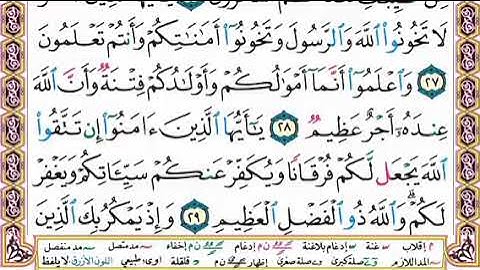 لَا تَخُونُوا۟ ٱللَّهَ وَٱلرَّسُولَ وَتَخُونُوٓا۟ أَمَٰنَٰتِكُمْ وَأَنتُمْ تَعْلَمُونَ
٢٧ وَٱعْلَمُوٓا۟ أَنَّمَآ أَمْوَٰلُكُمْ وَأَوْلَٰدُكُمْ فِتْنَةٌ وَأَنَّ ٱللَّهَ
عِندَهُۥٓ أَجْرٌ عَظِيمٌ ٢٨ يَٰٓأَيُّهَا ٱلَّذِينَ ءَامَنُوٓا۟ إِن تَتَّقُوا۟
ٱللَّهَ يَجْعَل لَّكُمْ فُرْقَانًا وَيُكَفِّرْ عَنكُمْ سَيِّـَٔاتِكُمْ وَيَغْفِرْ
لَكُمْ ۗ وَٱللَّهُ ذُو ٱلْفَضْلِ ٱلْعَظِيمِ ٢٩ وَإِذْ يَمْكُرُ بِكَ ٱلَّذِينَ
م إقلاب غنة إدغام بلاغنة ن م إدغام ن م إخفاء مد متصل مد منفصل
المد اللازم صلة كبرى صلة صغرى إظهار ن م قلقلة اوى: طبيعي اللون الأزرق لا يلفظ